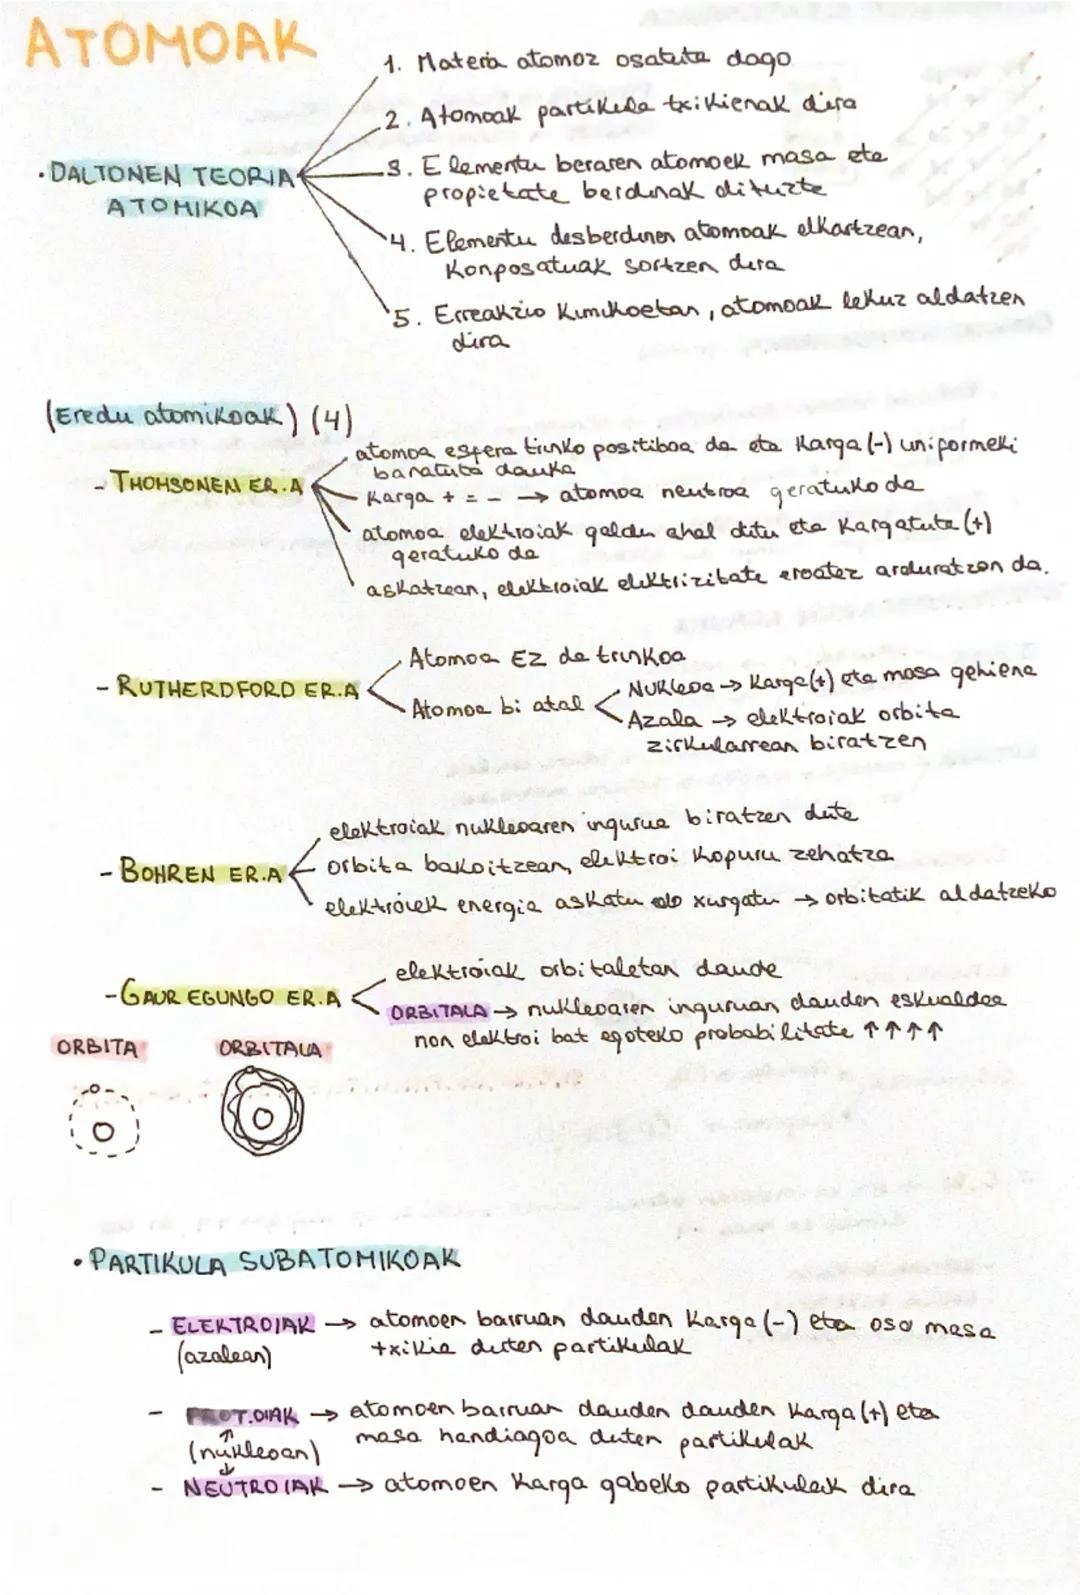 ATOMOAK
1. Materia atomoz osatuta dago
2. Atomoak partikula txikienak dira
· DALTONEN TEORIA ATOMIKOA
3. Elementu beraren atomoek masa eta
propietate berdinak dituzte
4. Elementu desberdinen atomoak elkartzean,
Konposatuak sortzen dira
5. Erreakzio kimikoetan, atomoak lekuz aldatzen
dira
(Eredu atomikoak) (4)
- THOMSONEN ER.A
atomoa esfera trinko positiboa da eta Karga (-) uniformeki
banatuta dauka
Karga + = - → atomoa neutroa geratuko da
atomoa elektroiak galdu ahal ditu eta Kargatuta (+)
geratuko da
askatzean, elektroiak elektrizitate eroatez arduratzen da.
- RUTHERDFORD ER.A
Atomoa EZ da trinkoa
Atomoa bi atal
Nukleoa → Karga(+) eta masa gehiena
Azala → elektroiak orbita
zirkularrean biratzen
- BOHREN ER.A
elektroiak nukleoaren ingurua biratzen dute
orbita bakoitzean, elektroi kopuru zehatza
elektroiek energia askatu edo xurgatu → orbitatik aldatzeko
- GAUR EGUNGO ER.A
elektroiak orbitaletan daude
ORBITALA → nukleoaren inguruan dauden eskualdea
non elektroi bat egoteko probabilitate ↑↑↑↑
ORBITA ORBITALA
· PARTIKULA SUBATOMIKOAK
- ELEKTROIAK → atomoen barruan dauden Karga (-) eta oso masa
(azalean) txikia duten partikulak
- PROTOIAK → atomoen barruan dauden dauden Karga (+) eta
(nukleoan) masa handiagoa duten partikulak
- NEUTROIAK → atomoen Karga gabeko partikulak dira